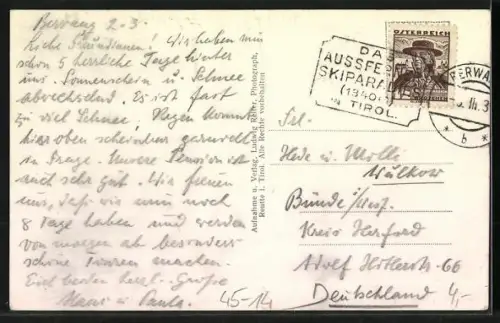 Berwang 2.3.
Liebe Freundinnen! Wir haben nun
schon 5 herrliche Tage hinter
uns. Sonnenschein u. Schnee
abwechselnd. Es ist fast
zu viel Schnee, Regen kommt
hier oben scheinbar garnicht
in Frage. Unsere Pension ist
auch sehr gut. Wir freuen
uns, daß wir nun noch
8 Tage haben und werden
von morgen ab besonders
schöne Touren machen.
Euch beiden herzl. Grüße
Hansi u. Paula.
45-14
Aufnahme u. Verlag, Ludwig Reiter, Photograph,
Reutte i. Tirol. Alle Rechte vorbehalten
DAS
AUSSFE
SKIPARA
(1340
IN TIROL.
ÖSTERREICH
BERWA
b
Frl.
Hede u. Molli
Wülkow
Bünde i/Westf.
Kreis Herford
Adolf Hitlerstr. 66
Deutschland
4,-